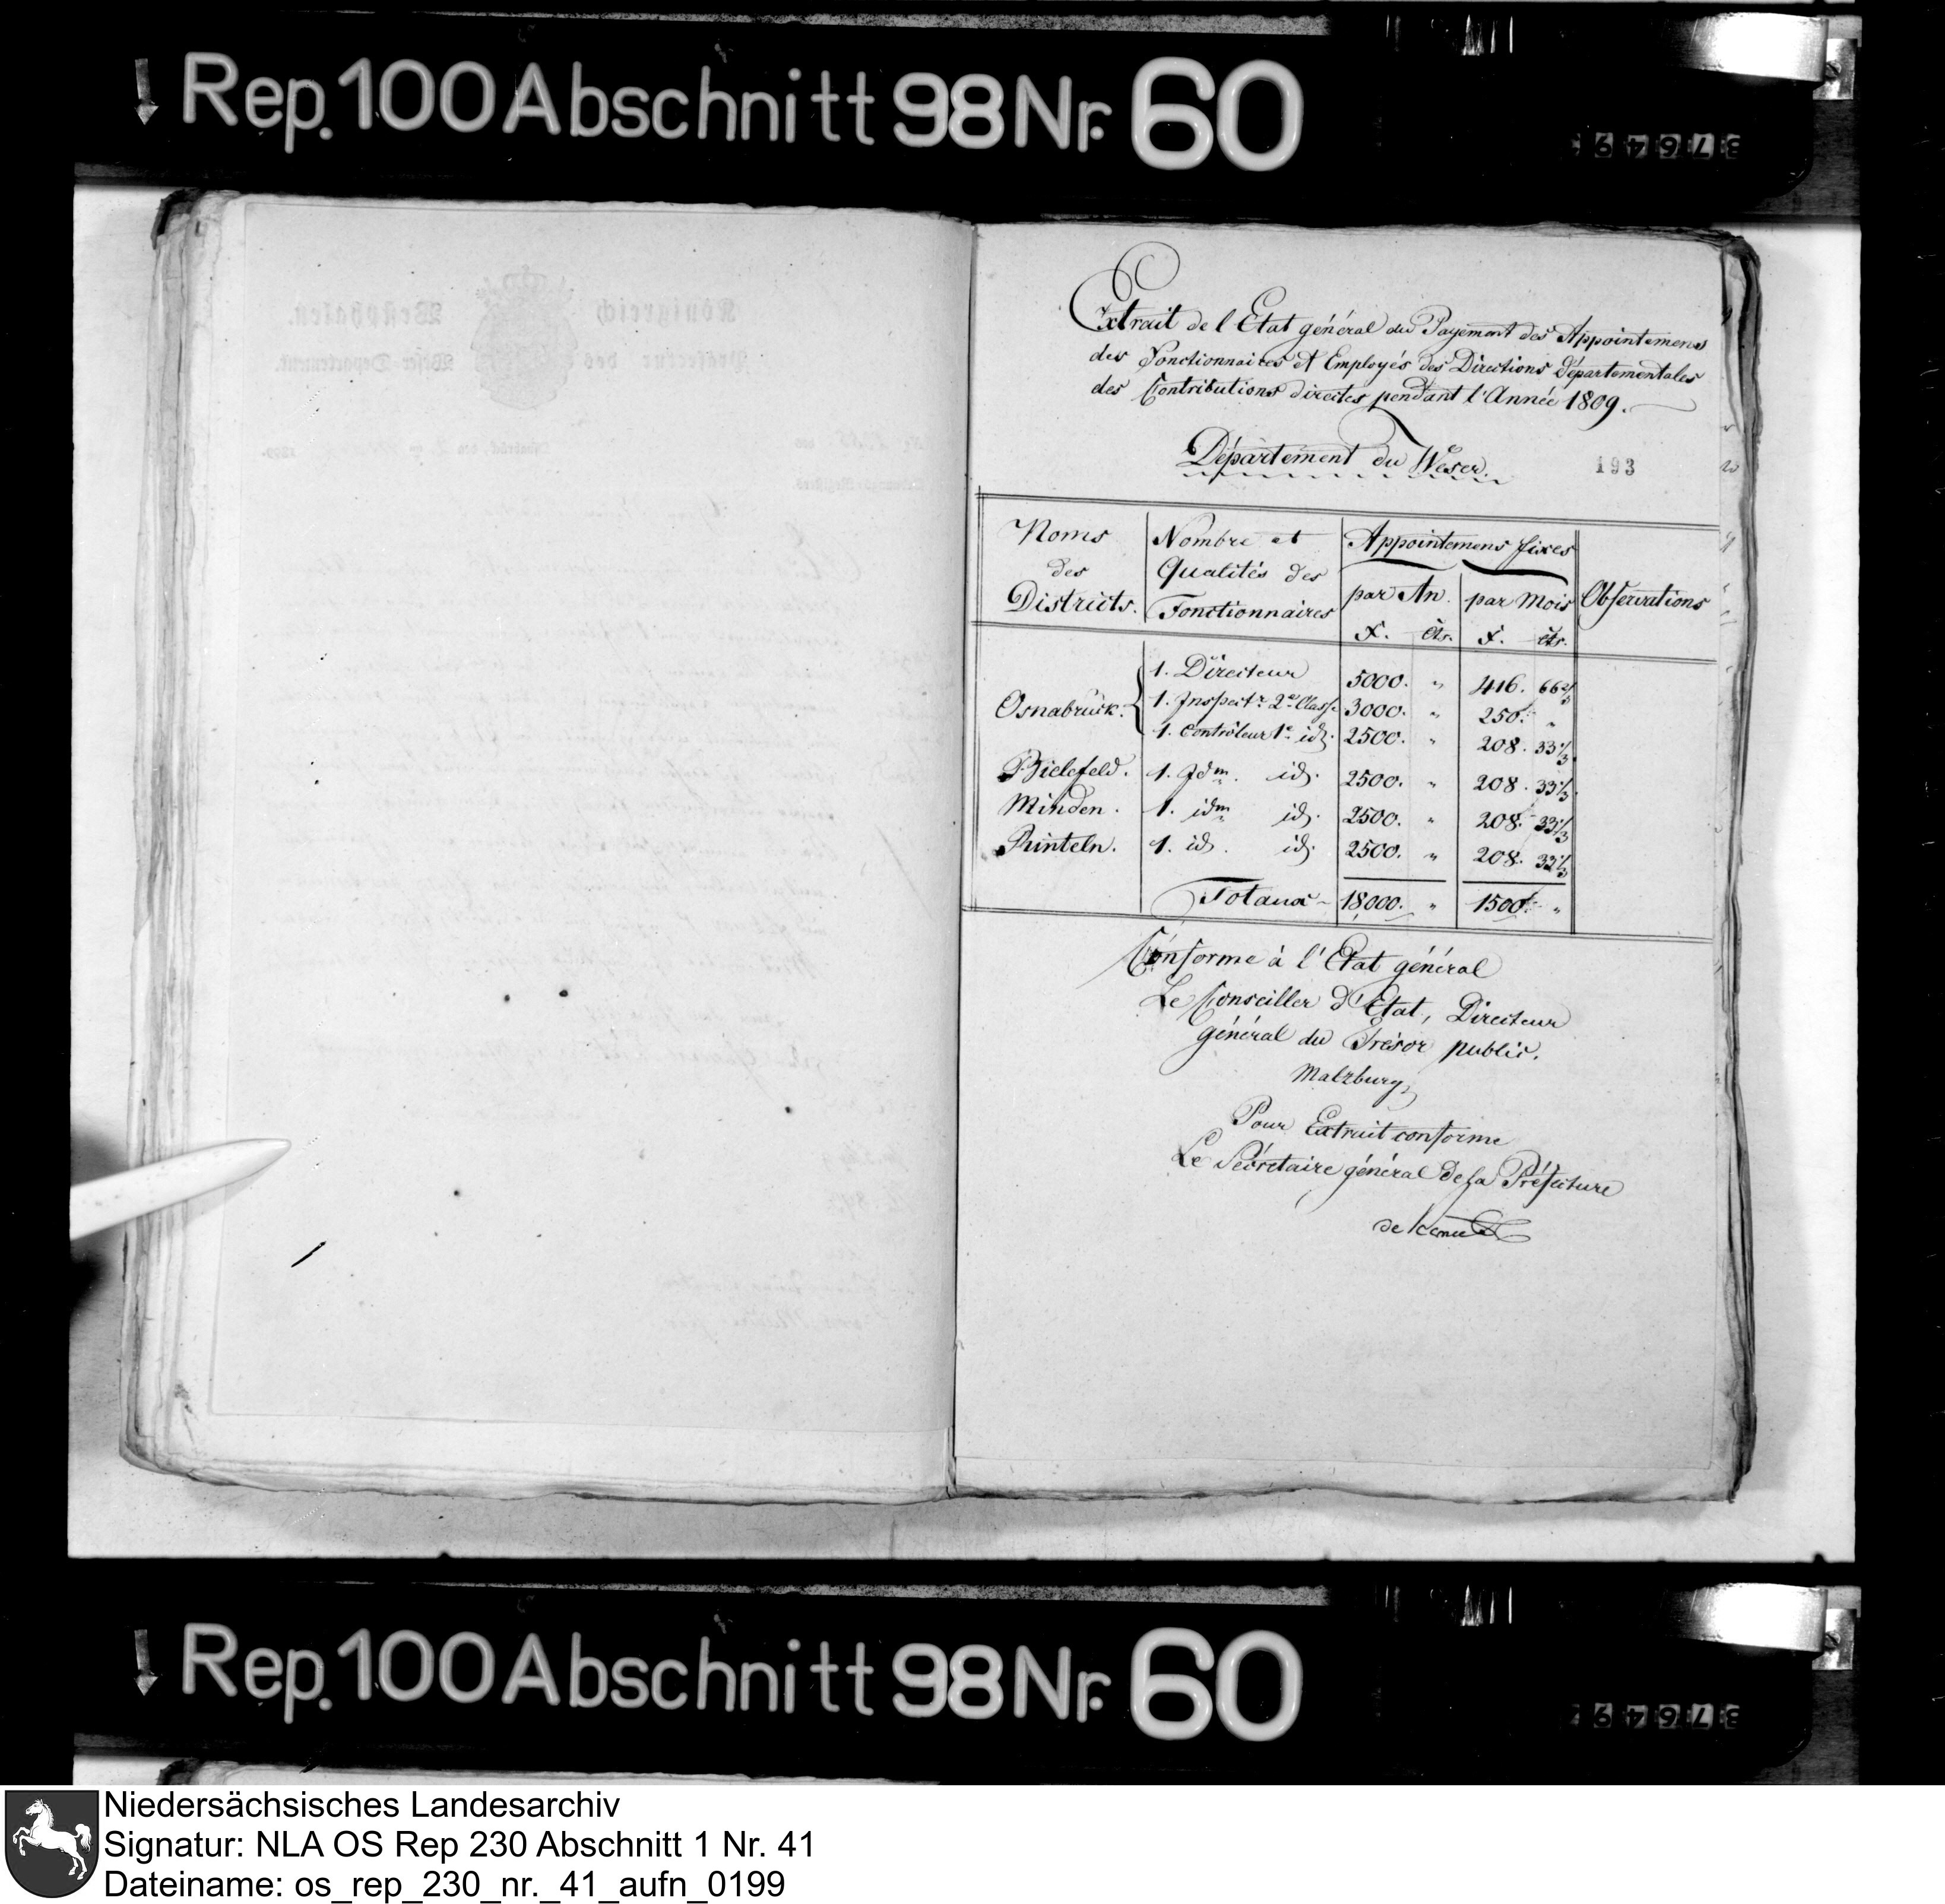 Rep. 100 Abschnitt 98 Nr. 60
37649
Extrait de l'Etat général du Payement des Appointemens
des Fonctionnaires et Employés des Directions Départementales
des Contributions directes pendant l'Année 1809.
Département du Weser.
193
Noms des Districts. | Nombre et Qualités des Fonctionnaires | Appointemens fixes | Observations
par An. | par Mois
F. | Cts. | F. | Cts.
Osnabrück. { 1. Directeur | 5000. " | 416. 66 2/3
1. Inspectr. 2e Classe | 3000. " | 250. "
1. Contrôleur 1e id. | 2500. " | 208. 33 1/3
Bielefeld. | 1. Idm. id. | 2500. " | 208. 33 1/3
Minden. | 1. idm id. | 2500. " | 208. 33 1/3
Rinteln. | 1. id. id. | 2500. " | 208. 33 1/3
Totaux | 18,000. " | 1500. "
Conforme à l'Etat général
Le Conseiller d'Etat, Directeur
général du Trésor public.
Malzburg
Pour Extrait conforme
Le Sécretaire général de la Préfecture
de
Rep. 100 Abschnitt 98 Nr. 60
37649
Niedersächsisches Landesarchiv
Signatur: NLA OS Rep 230 Abschnitt 1 Nr. 41
Dateiname: os_rep_230_nr._41_aufn_0199